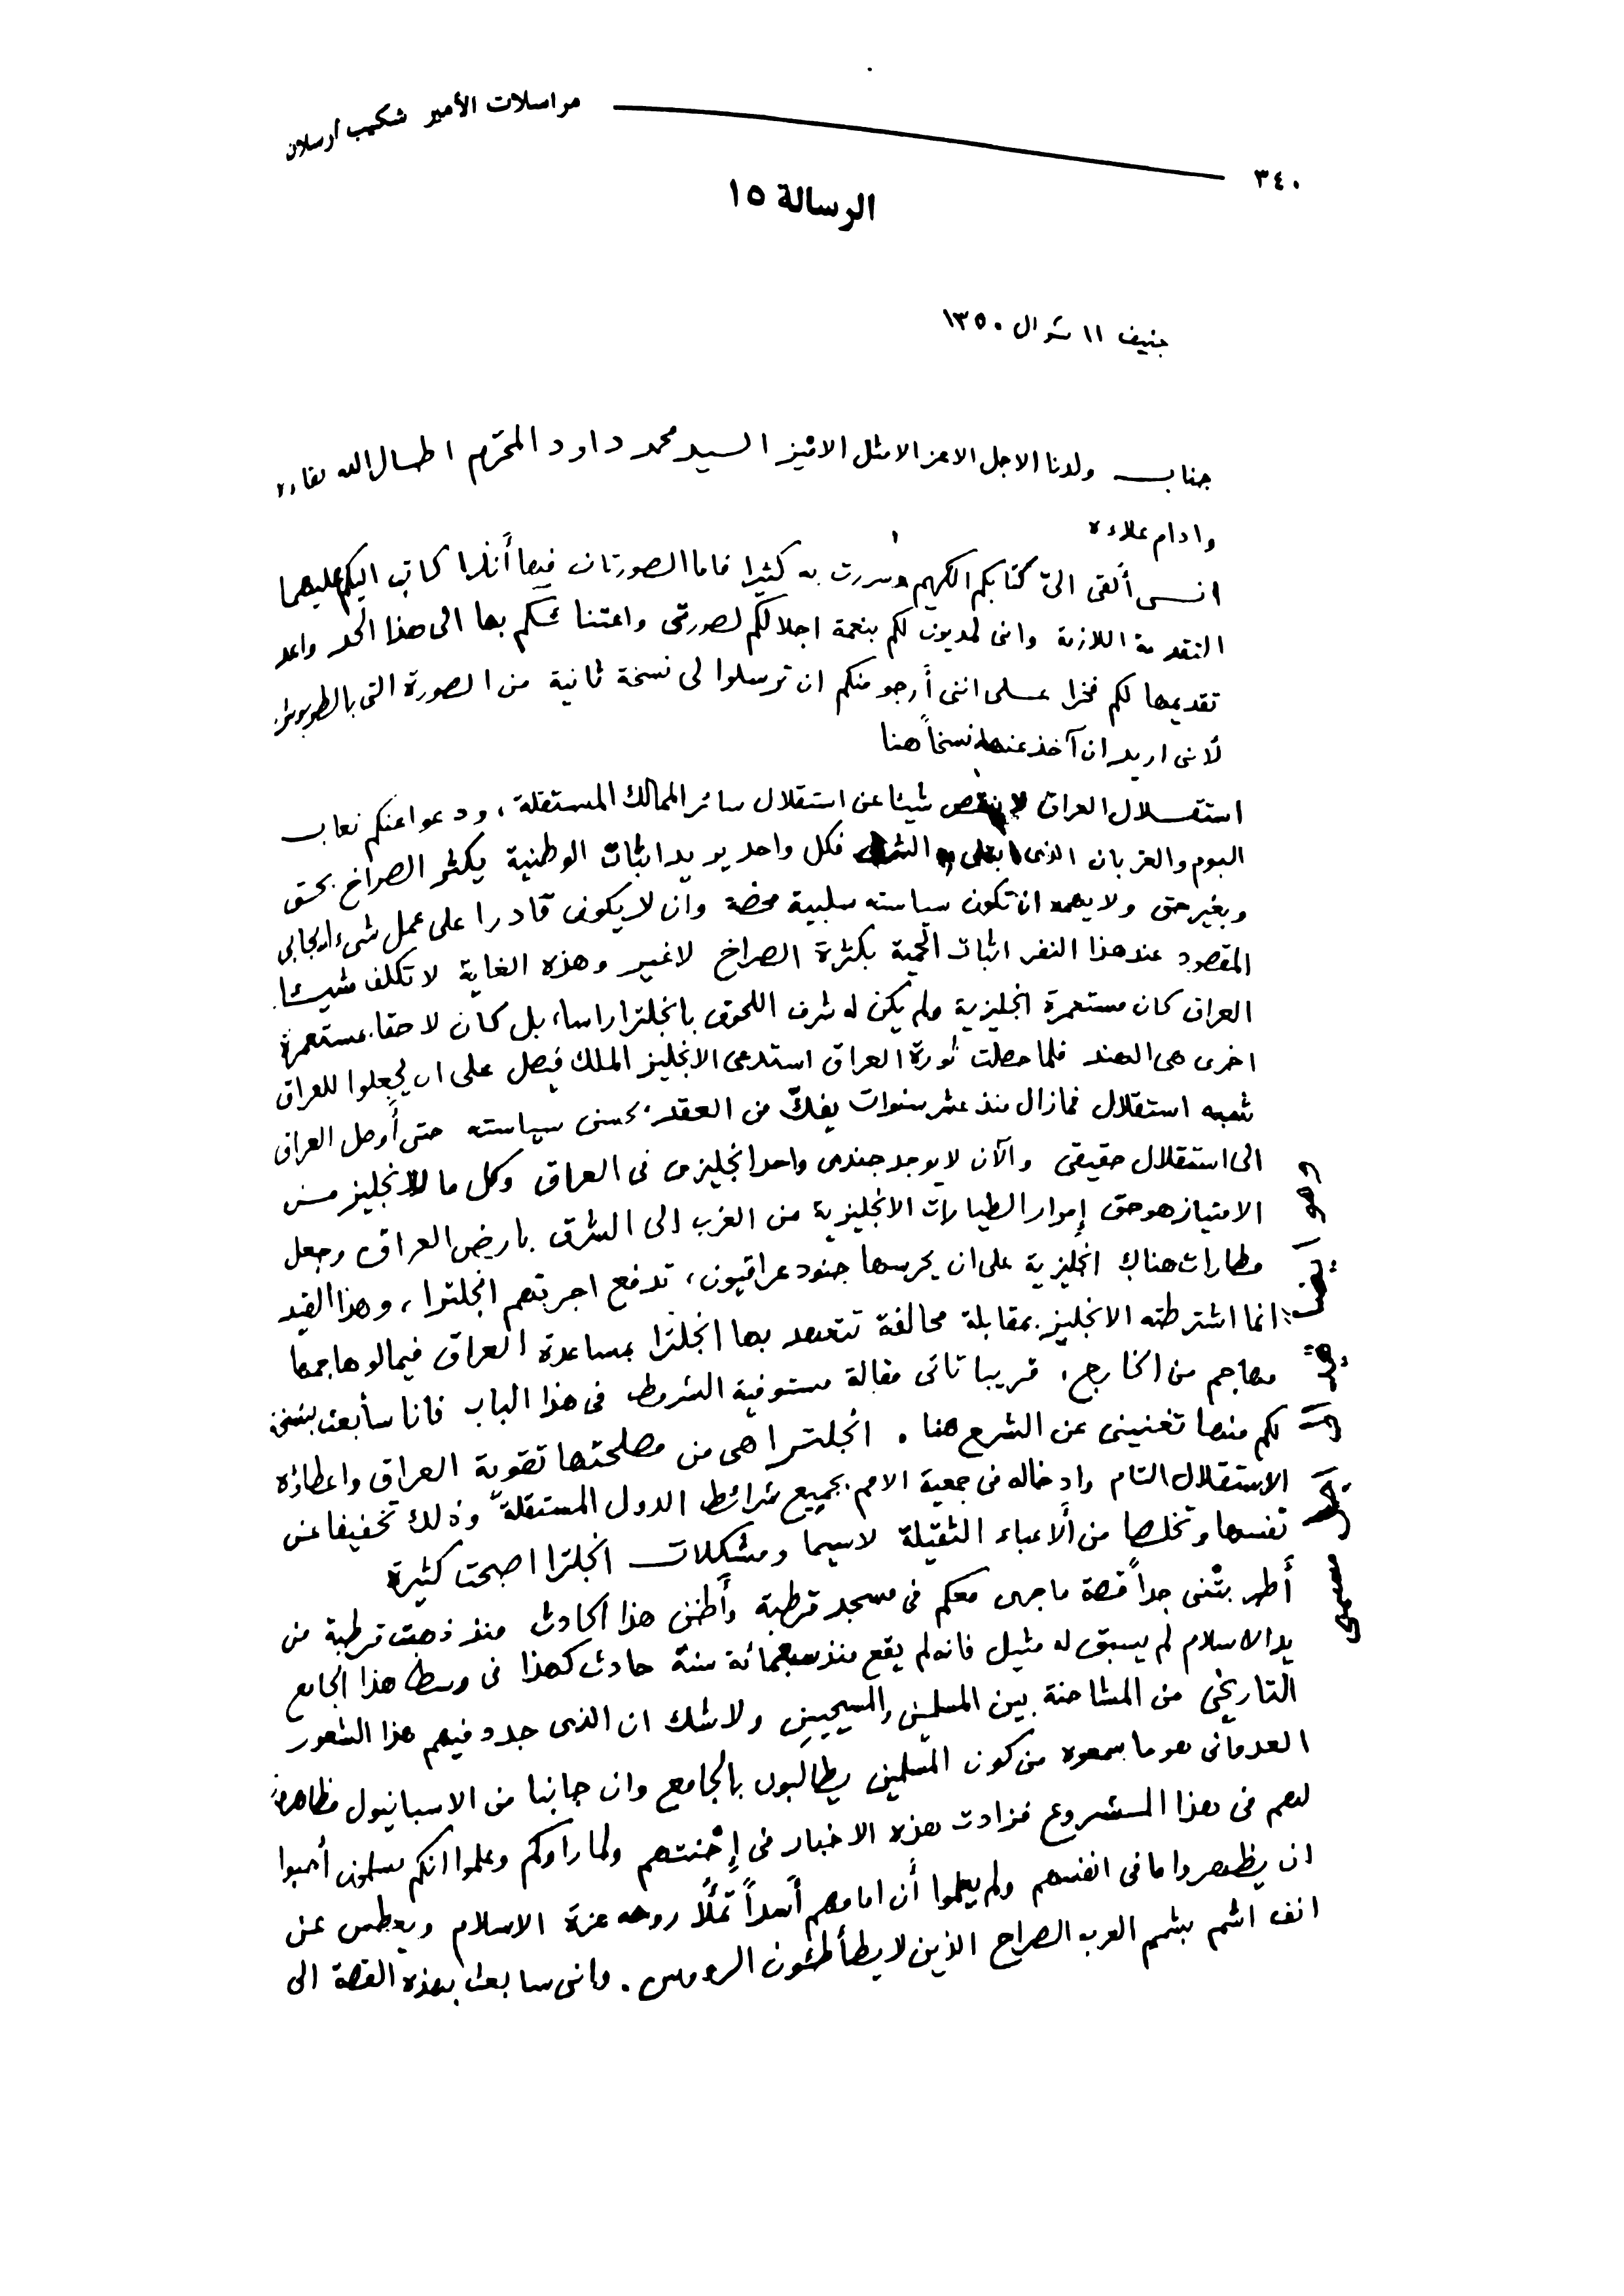 مراسلات الأمير شكيب أرسلان
٣٤٠
الرسالة ١٥
جنيف ١١ شوال ١٣٥٠
جناب ولدنا الاجل الاعز الامثل الاميز السيد محمد داود المحترم اطال الله بقاءه
وادام علاءه
امس ألقى الىّ كتابكم الكريم وسررت به كثيرا فاما الصورتان فيها أنذا كاتب اليكم عليهما
التقدمة اللازمة وانى لمديون لكم بنعمة اجلالكم لصورتى واعتنائكم بها الى هذا الحد واعد
تقديمها لكم فخرا على اننى أرجو منكم ان ترسلوا لى نسخة ثانية من الصورة التى بالطربوش
لأنى اريد ان آخذ عنها نسخاً هنا
استقلال العراق لا ينقص شيئا عن استقلال سائر الممالك المستقلة، ودعوا عنكم نعاب
البوم والغربان الذى ابتلى به الشرق فكل واحد يريد اثبات الوطنية يكثر الصراخ بحق
وبغير حق ولا يهمه ان تكون سياسته سلبية محضة وان لا يكون قادرا على عمل شىء ايجابى
المقصود عند هذا النفر اثبات الحمية بكثرة الصراخ لا غير وهذه الغاية لا تكلف شيئا.
العراق كان مستعمرة انجليزية ولم يكن له شرف اللحوق بانجلترا راسا، بل كان لاحقا بمستعمرة
اخرى هى الهند فلما حصلت ثورة العراق استدعى الانجليز الملك فيصل على ان يجعلوا للعراق
شبه استقلال فمازال منذ عشر سنوات يفكّ من العقد بحسن سياسته حتى أوصل العراق
الى استقلال حقيقى والآن لا يوجد جندى واحد انجليزى فى العراق وكل ما للانجليز من
الامتياز هو حق إمرار الطيارات الانجليزية من الغرب الى الشرق بارض العراق وجعل
مطارات هناك انجليزية على ان يحرسها جنود عراقيون، تدفع اجرتهم انجلترا، وهذا القيد
انما اشترطته الانجليز بمقابلة محالفة تتعهد بها انجلترا بمساعدة العراق فيما لو هاجمها
مهاجم من الخارج، قريبا تاتى مقالة مستوفية الشروط فى هذا الباب فانا سأبعث بنسخة
لكم منها تغنينى عن الشرع هنا. انجلترا هى من مصلحتها تقوية العراق واعطاؤه
الاستقلال التام وادخاله فى جمعية الامم بجميع شرائط الدول المستقلة وذلك تخفيفا عن
نفسها وتخلصا من ألاعباء الثقيلة لاسيما ومشكلات انجلترا اصبحت كثيرة
وهو ايضا قيد الى اجل مسمى
أطربتنى جداً قصة ما جرى معكم فى مسجد قرطبة وأظن هذا الحادث منذ ذهبت قرطبة من
يد الاسلام لم يسبق له مثيل فانه لم يقع منذ سبعمائة سنة حادث كهذا فى وسط هذا الجامع
التاريخى من المشاحنة بين المسلمين والمسيحيين ولا شك ان الذى جدد فيهم هذا الشعور
العدوانى هو ما سمعوه من كون المسلمين يطالبون بالجامع وان جانبا من الاسبانيول مظاهر
لهم فى هذا المشروع فزادت هذه الاخبار فى إحنتهم ولما رأوكم وعلموا انكم مسلمون أحبوا
ان يظهروا ما فى انفسهم ولم يعلموا أن امامهم أسداً تملأ روحه عزة الاسلام ويعطس عن
انف اشم بشمم العرب الصراح الذين لا يطأطئون الرءوس. وانى سابعث بهذه القصة الى